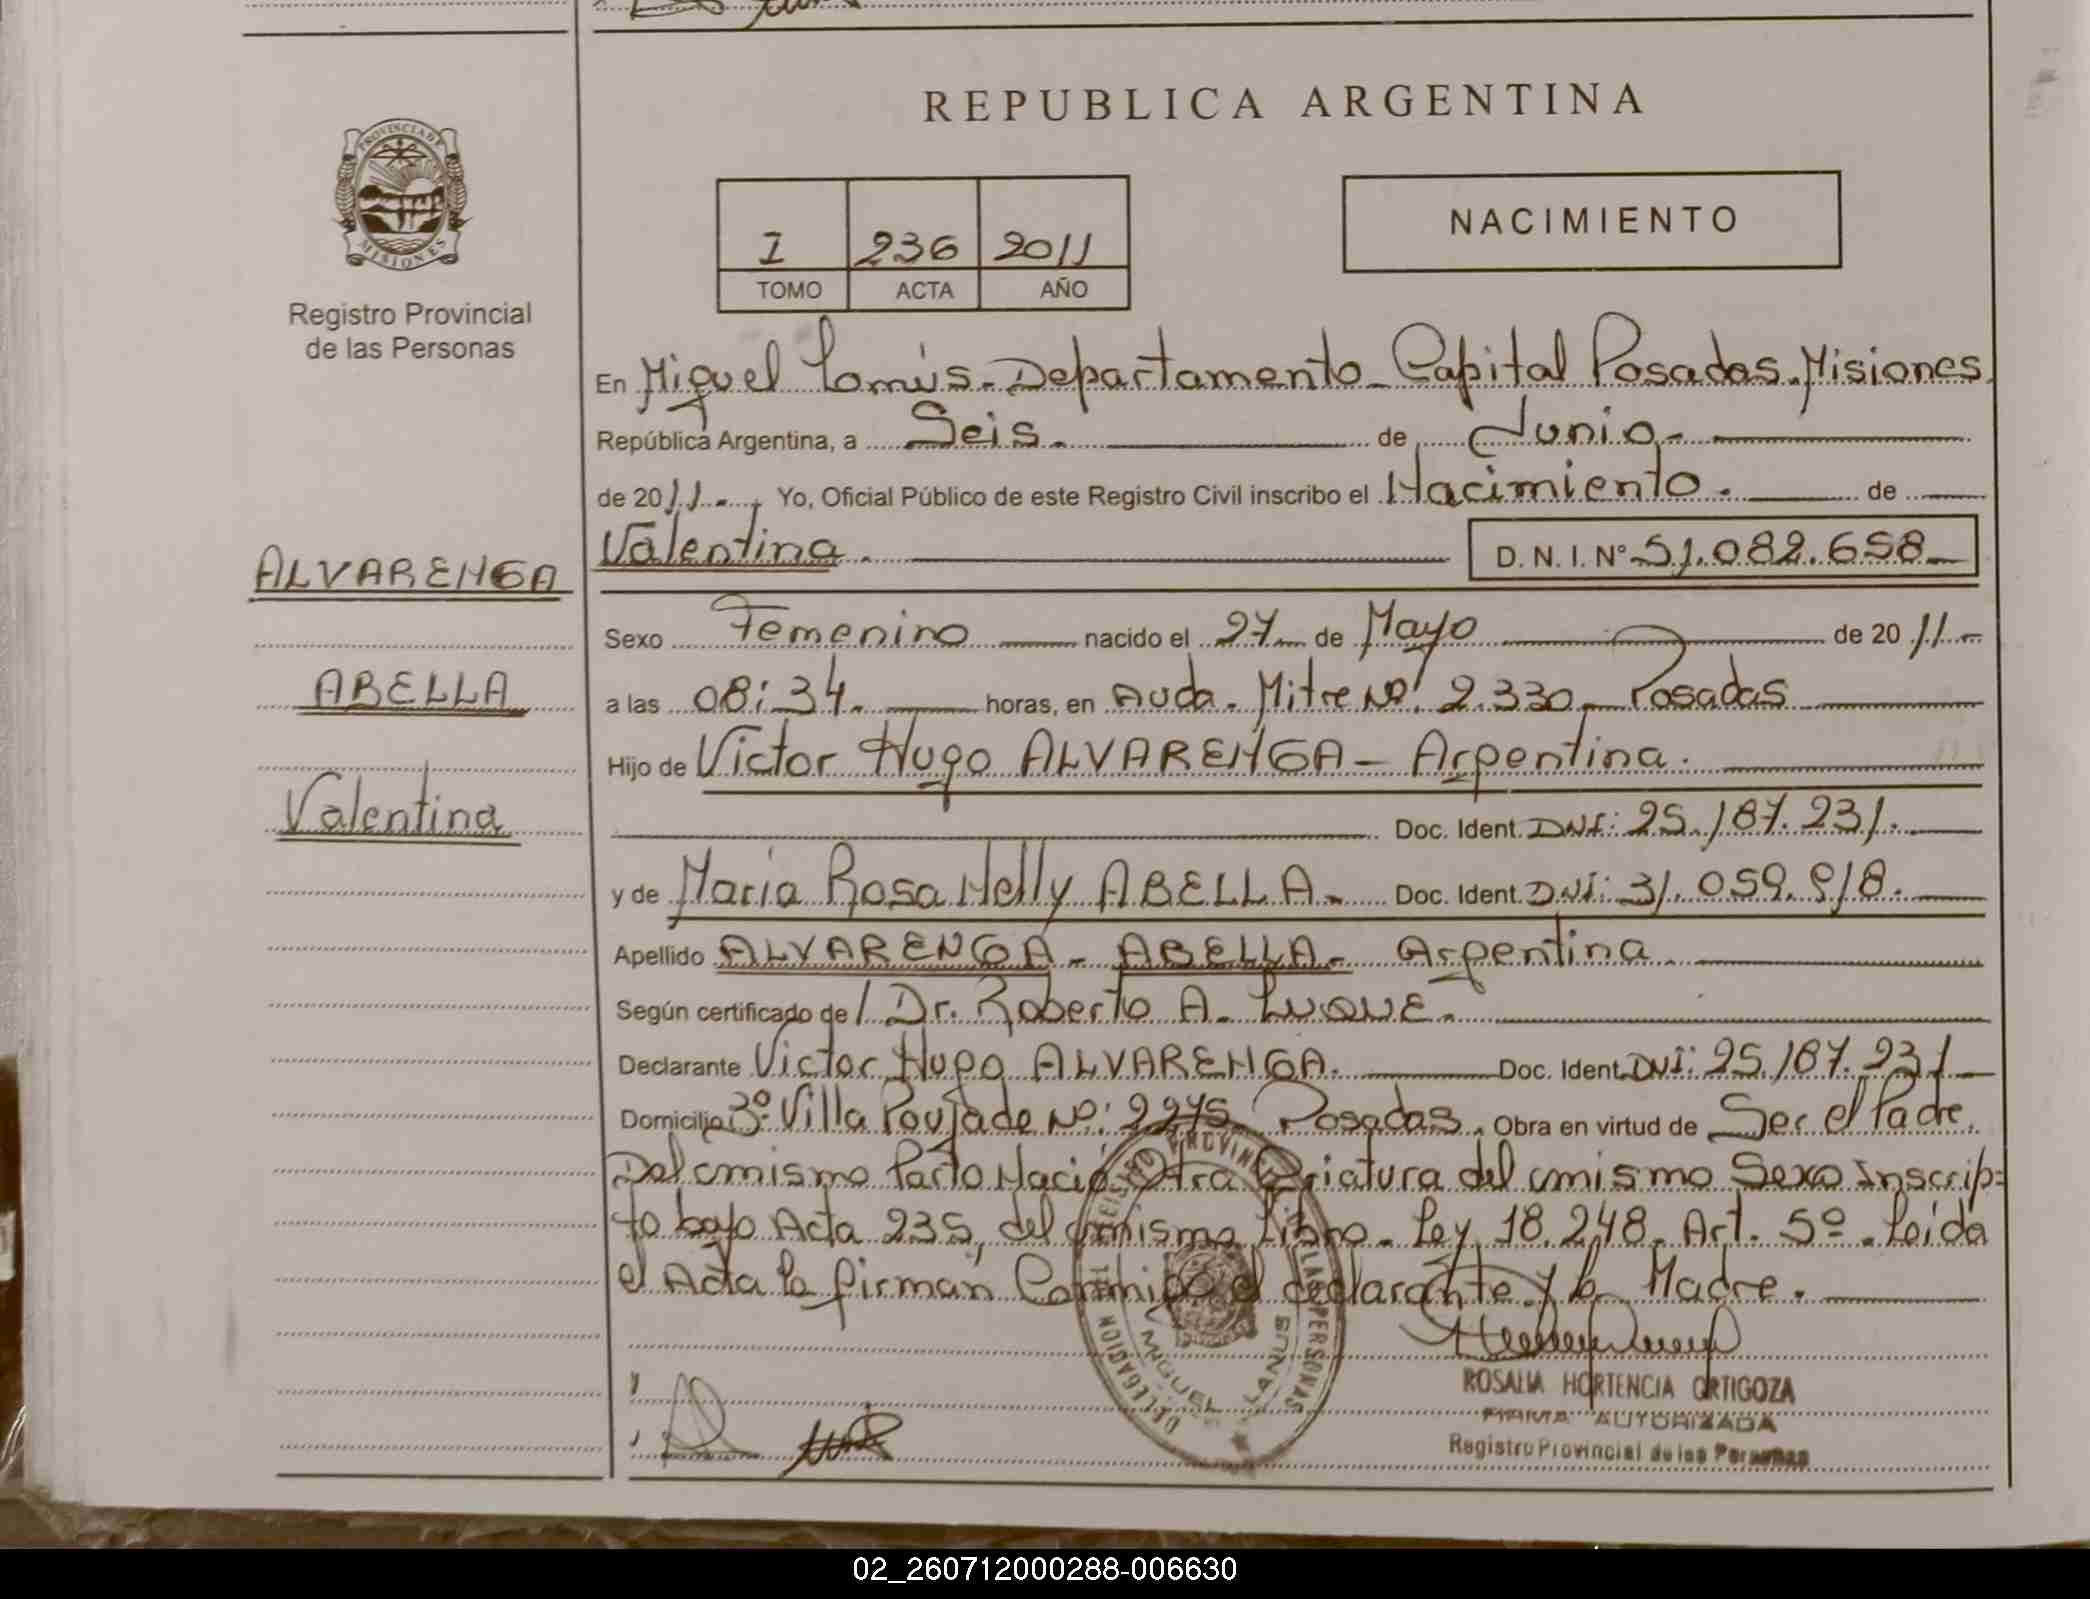 REPUBLICA ARGENTINA
PROVINCIA DE
MISIONES
Registro Provincial
de las Personas
I 236 2011
TOMO ACTA AÑO
NACIMIENTO
En Miguel Lanús. Departamento Capital Posadas. Misiones
República Argentina, a Seis. de Junio.
de 2011. , Yo, Oficial Público de este Registro Civil inscribo el Nacimiento. de
Valentina. D. N. I. Nº 51.082.658
ALVARENGA
ABELLA
Valentina
Sexo Femenino nacido el 27 de Mayo de 2011
a las 08:34. horas, en Avda. Mitre Nº: 2.330 Posadas
Hijo de Victor Hugo ALVARENGA - Argentina.
Doc. Ident. DNI: 25.187.231.
y de Maria Rosa Nelly ABELLA. Doc. Ident. DNI: 31.059.918.
Apellido ALVARENGA - ABELLA - Argentina
Según certificado de / Dr. Roberto A. LUQUE.
Declarante Victor Hugo ALVARENGA. Doc. Ident. DNI: 25.187.231
Domicilio 3º Villa Poujade Nº: 2275 Posadas. Obra en virtud de Ser el Padre.
Del mismo Parto Nació Otra Criatura del mismo Sexo Inscrip=
to bajo Acta 235, del mismo Libro. Ley 18.248. Art. 5º. Leída
el Acta la firman Conmigo el declarante y la Madre.
DELEGACION
MIGUEL LANUS
ROSALIA HORTENCIA ORTIGOZA
FIRMA AUTORIZADA
Registro Provincial de las Personas
02_260712000288-006630